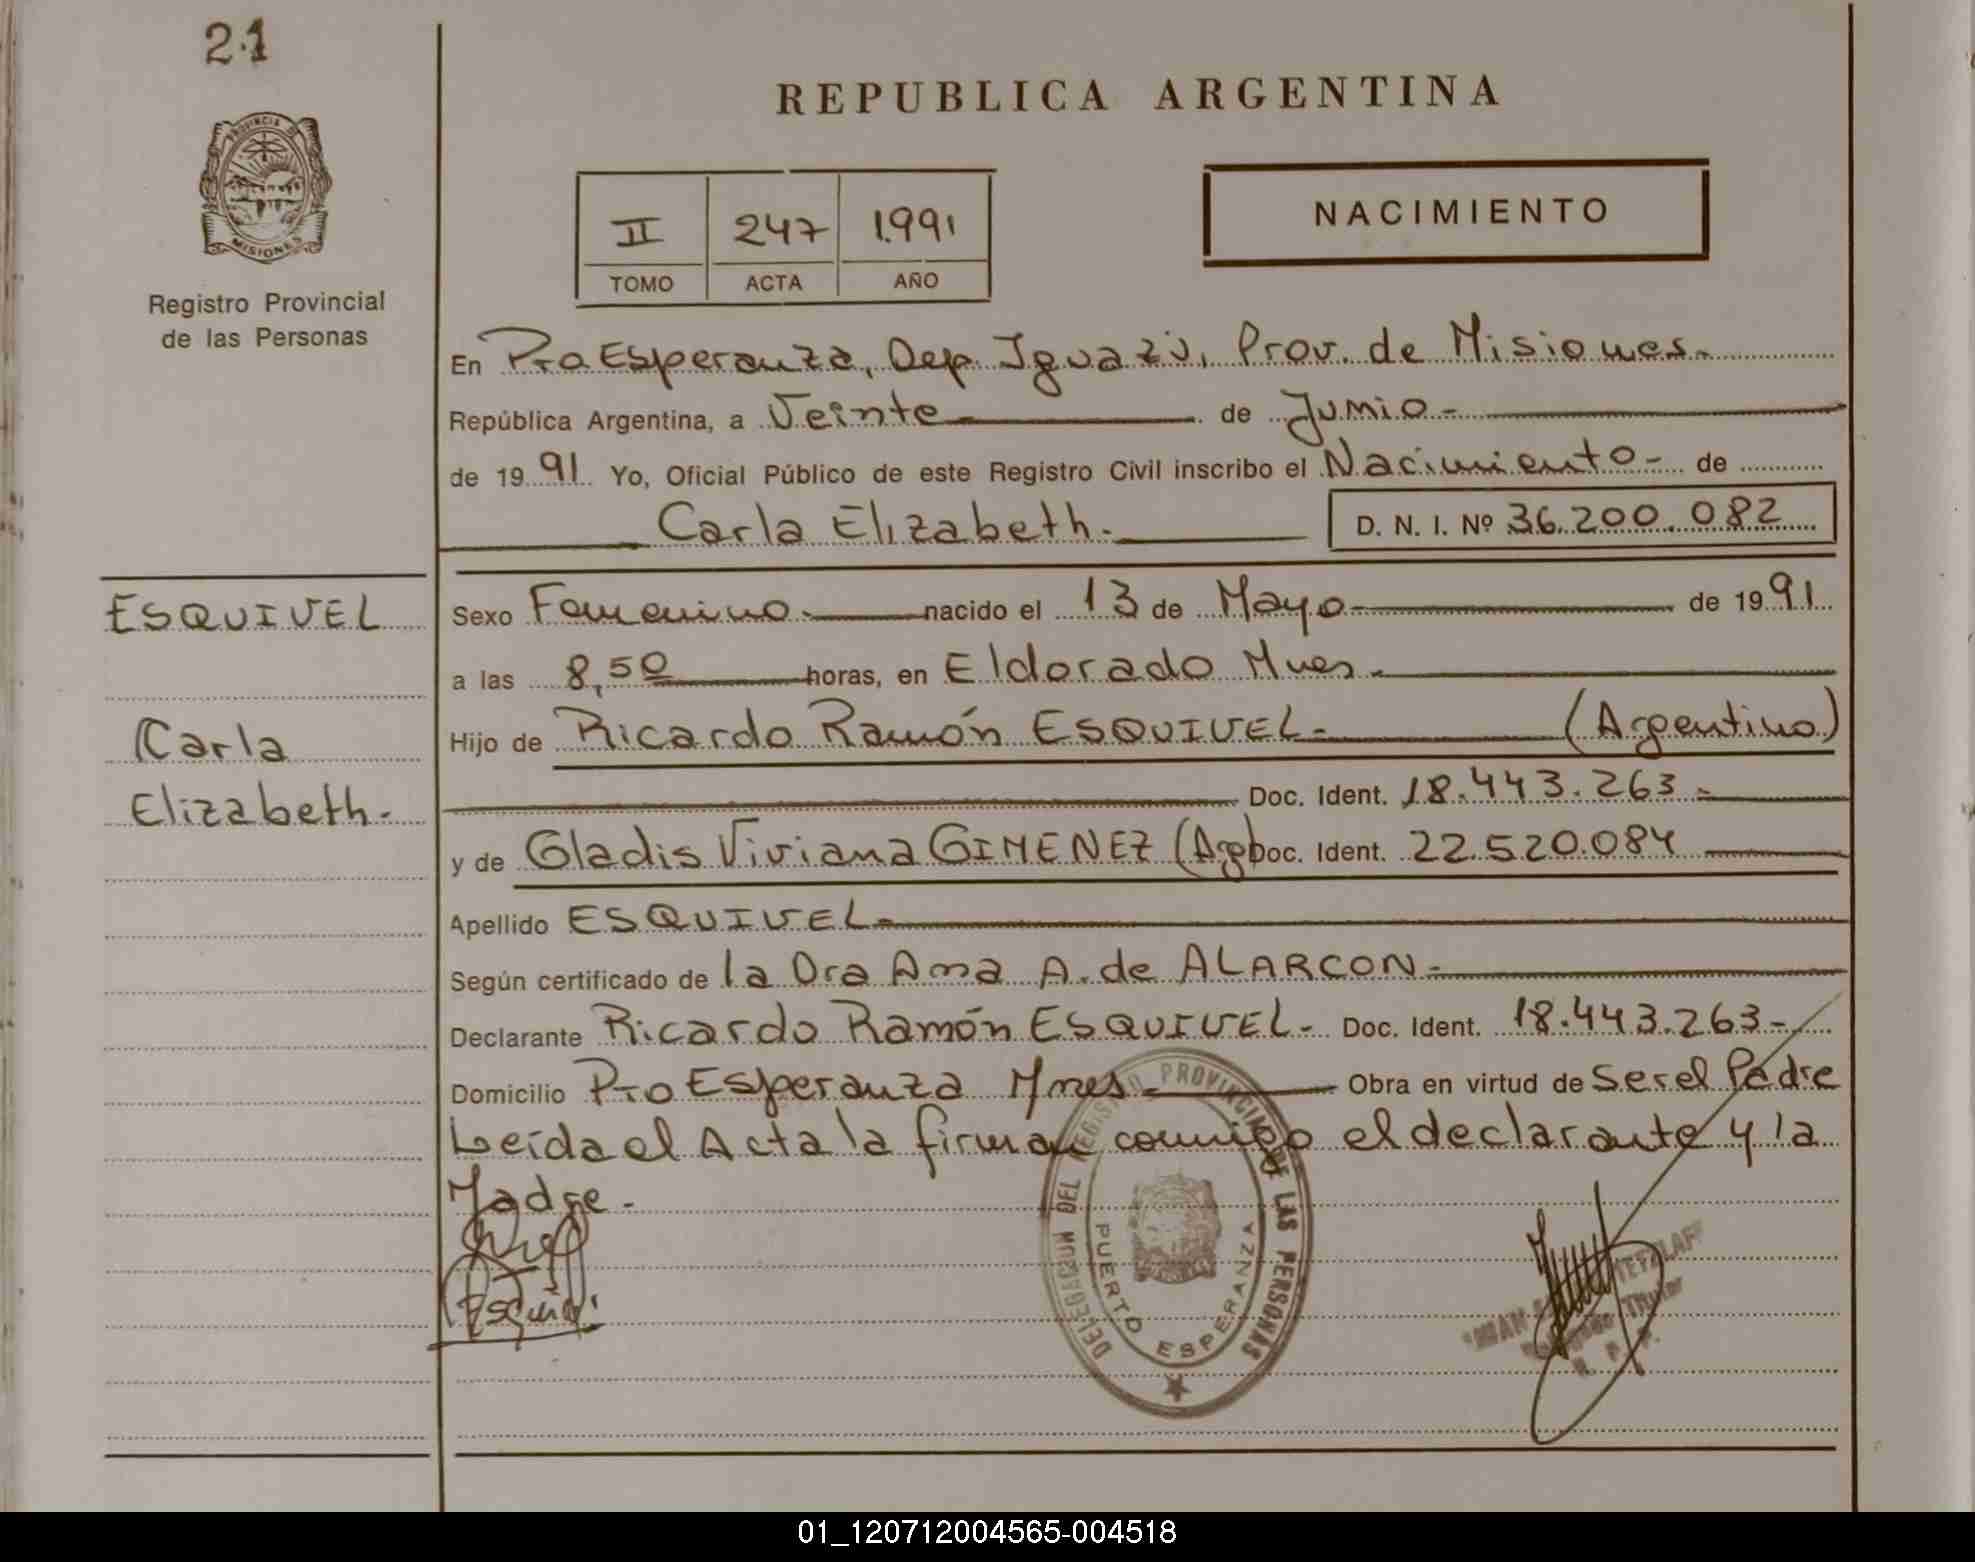 21
PROVINCIA DE
MISIONES
Registro Provincial
de las Personas
REPUBLICA ARGENTINA
II 247 1.991
TOMO ACTA AÑO
NACIMIENTO
En Pto Esperanza, Dep. Iguazú, Prov. de Misiones.
República Argentina, a Veinte de Junio
de 1991 Yo, Oficial Público de este Registro Civil inscribo el Nacimiento de
Carla Elizabeth. D. N. I. Nº 36.200.082
ESQUIVEL
Carla
Elizabeth.
Sexo Femenino nacido el 13 de Mayo de 1991
a las 8,50 horas, en Eldorado Mnes.
Hijo de Ricardo Ramón ESQUIVEL (Argentino)
Doc. Ident. 18.443.263
y de Gladis Viviana GIMENEZ (Arg) Doc. Ident. 22.520.084
Apellido ESQUIVEL
Según certificado de la Dra Ana A. de ALARCON
Declarante Ricardo Ramón ESQUIVEL Doc. Ident. 18.443.263
Domicilio Pto Esperanza Mnes. Obra en virtud de Ser el Padre
Leída el Acta la firman conmigo el declarante y la
Madre.
DELEGACION DEL REGISTRO PROVINCIAL DE LAS PERSONAS
PUERTO ESPERANZA
01_120712004565-004518